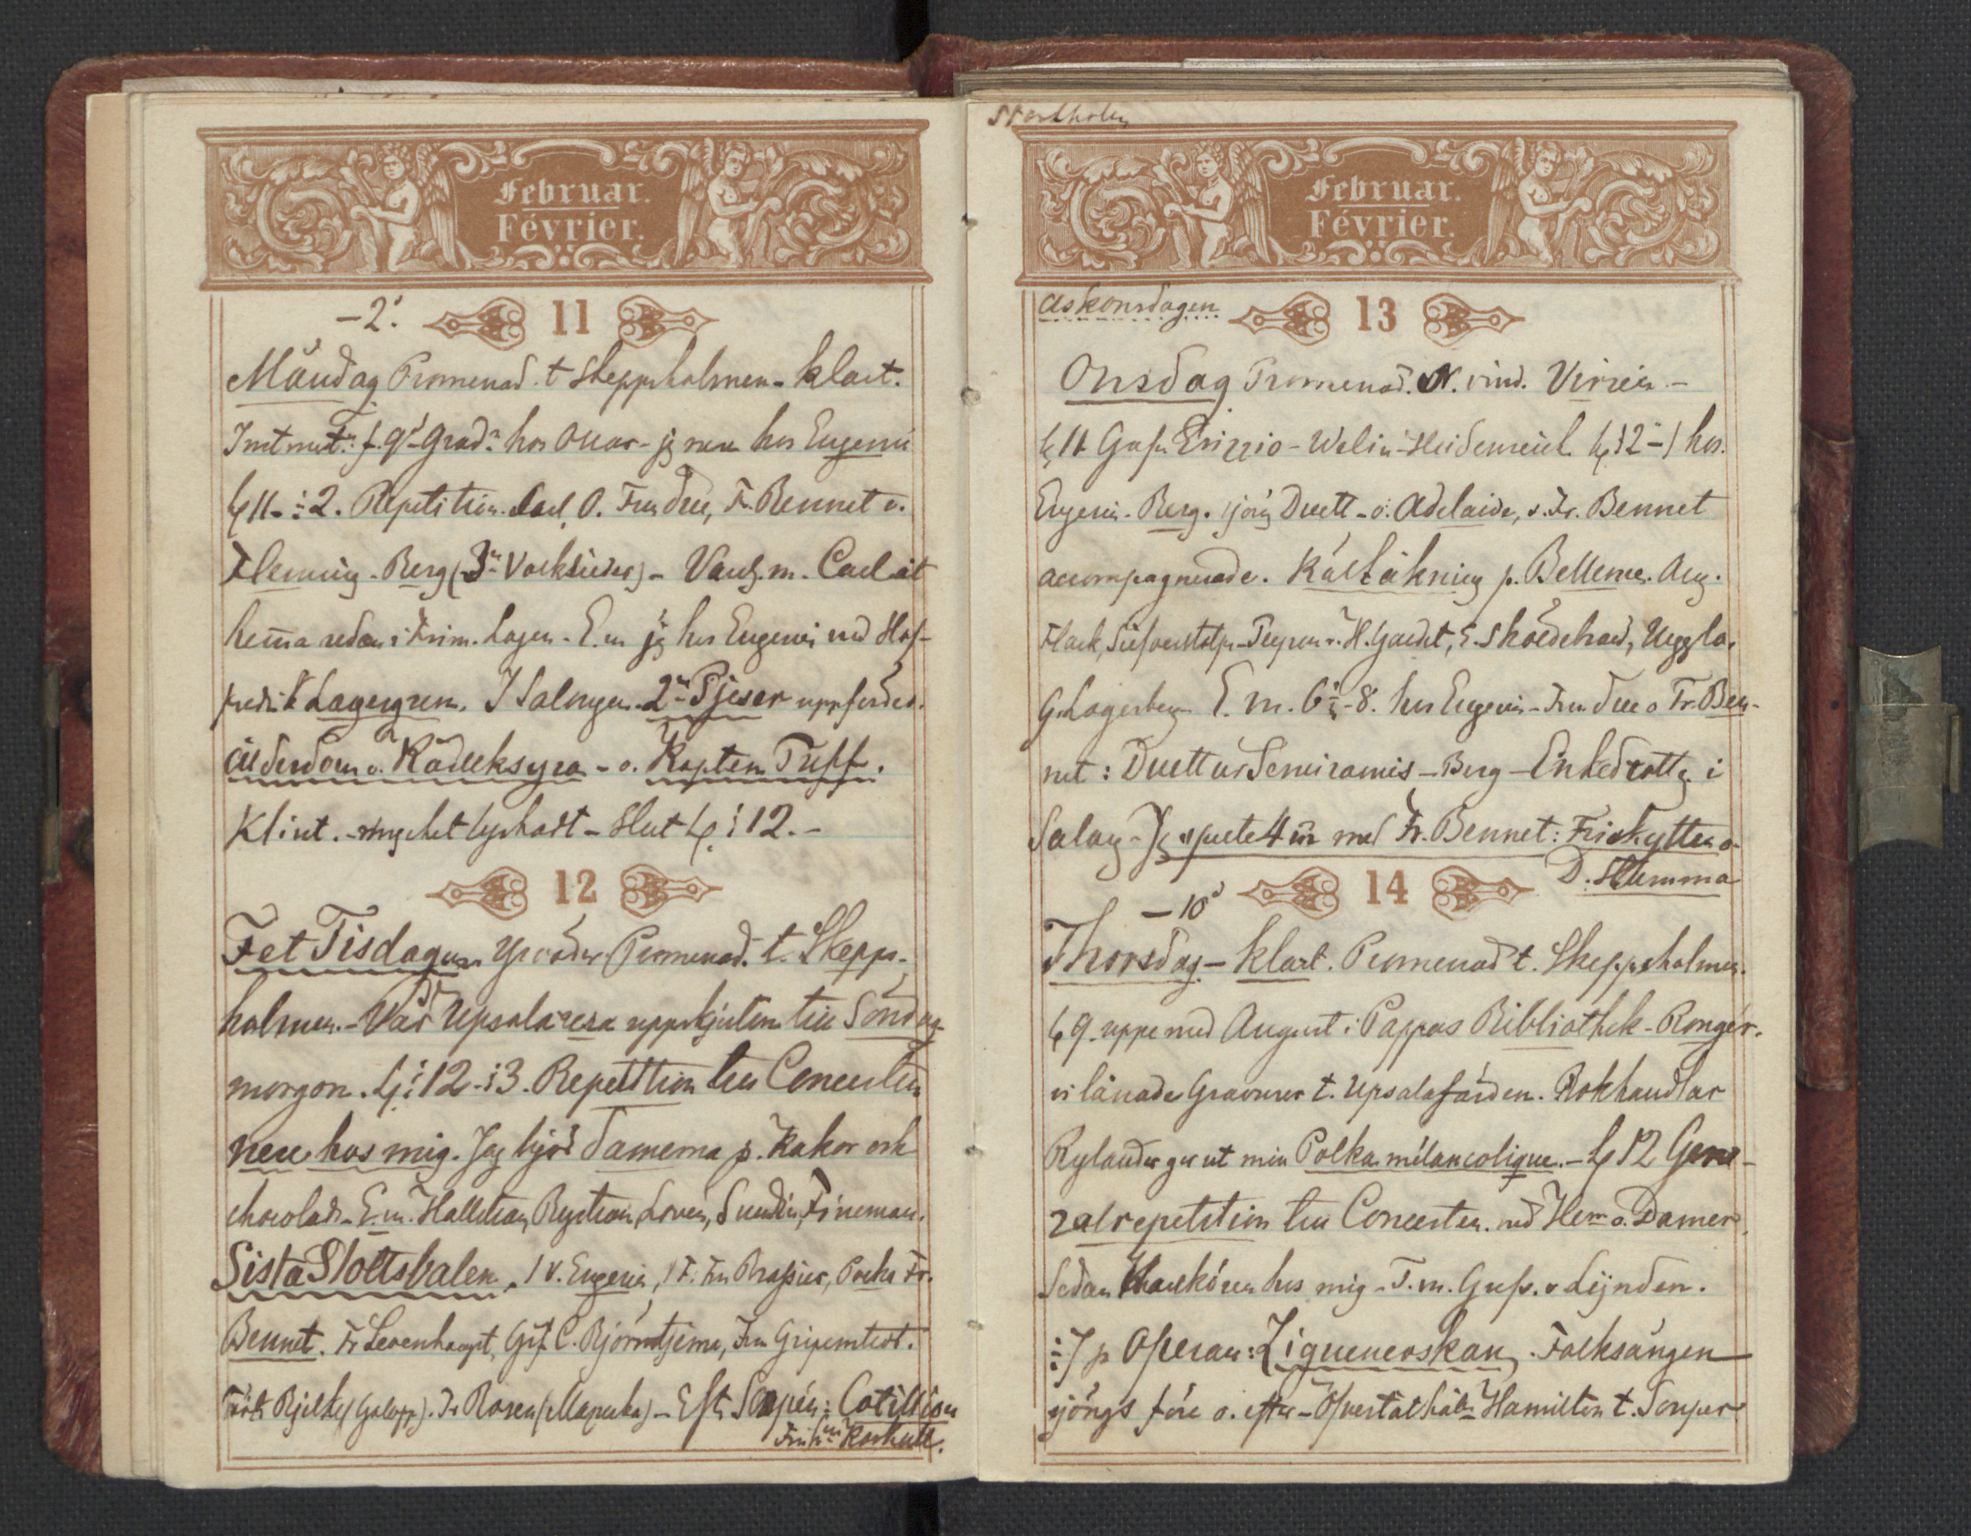 Februar.
Février.
-2°. 11
Måndag Promenad t Skeppsholmen - klart.
f. 9de Graden hos Oscar - jg hos Eugenie
kl 11 - ½ 2. Repetition. Carl, O. Fru Dree, Fr. Bennet o.
Flemming - Berg (3ne Volkslieder) - m. Carl åt
hemma redan i Frim. Logen - E. m jg hos Eugenie med Hof-
predik Lagergren. I Salongen. 2ne Pjeser uppfördes.
Ålderdom o. Rådleksyra - o. Kapten Puff.
Klint. - mycket lyckadt - slut kl. ½ 12. -
12
Fet Tisdagen Yrväder Promenad. t. Skepps-
holmen. - Vår Upsalaresa uppskjuten till Söndag
morgon. kl. ½ 12 - ½ 3. Repetition till Concerten
hos mig. Jag bjöd damerna p. kakor och
chocolade - E. m. Hallström, Byström, Lovén, Sundin, Fineman.
Sista Slottsbalen. 1 V. Eugenie, 1 F. Fru Polka Fr.
Bennet. Fr Levenhaupt, Grf. C. Björnstjerna, Fru Gripenstedt.
Bjelke (Galopp). Fr Rosen (Mazurka) - Eft. Soupén: Cotillion
Koskull.
Stockholm
Februar.
Février.
Askonsdagen 13
Onsdag Promenad. N. vind. Virrein -
kl 11 Grefn Erizzio - Welin - Heidenreich kl. ½ 2 - 1 hos.
Eugenie - Berg. sjöng Duett - o. Adelaide, s. Fr. Bennet
accompagnerade. Kälkåkning p. Bellevue. Aug.
Flack, Silfverstolpe - Peyron v. H. Gardt, E. Skoldebrand, Uggla,
G. Lagerberg E. m. 6½ - 8. hos Eugenie - Fru Dree o Fr. Ben-
net: Duett ur Semiramis - Berg - Enkedrottn i
Salong - Jg spelte 4 m med Fr. Bennet: Friskytten o.
D. Stumma
-10° 14
Thorsdag - klart. Promenad t. Skeppsholmen.
kl 9. uppe med August i Pappas Bibliothek - Rongér.
vi lånade Gravurer t. Upsalafärden. Bokhandlar
Rylander ger ut min Polka mélancolique. - kl 12 Gene-
ralrepetition till Concerten. med Herr o. Damer
Sedan Manskören hos mig - T. m. Grefv. v Lijnden.
½ 7 p Operan: Ziguenerskan. Folksången
sjöngs före o. efter - Öfverståthålln Hamilton t. Souper